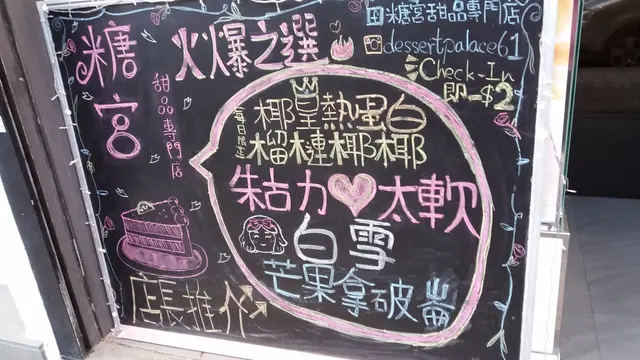 糖宮
甜品專門店
火爆之選
糖宮甜品專門店
dessertpalace61
Check-In
即-$2
每日限定
椰皇熱蛋白
榴槤椰椰
朱古力太軟
白雪
芒果拿破崙
店長推介